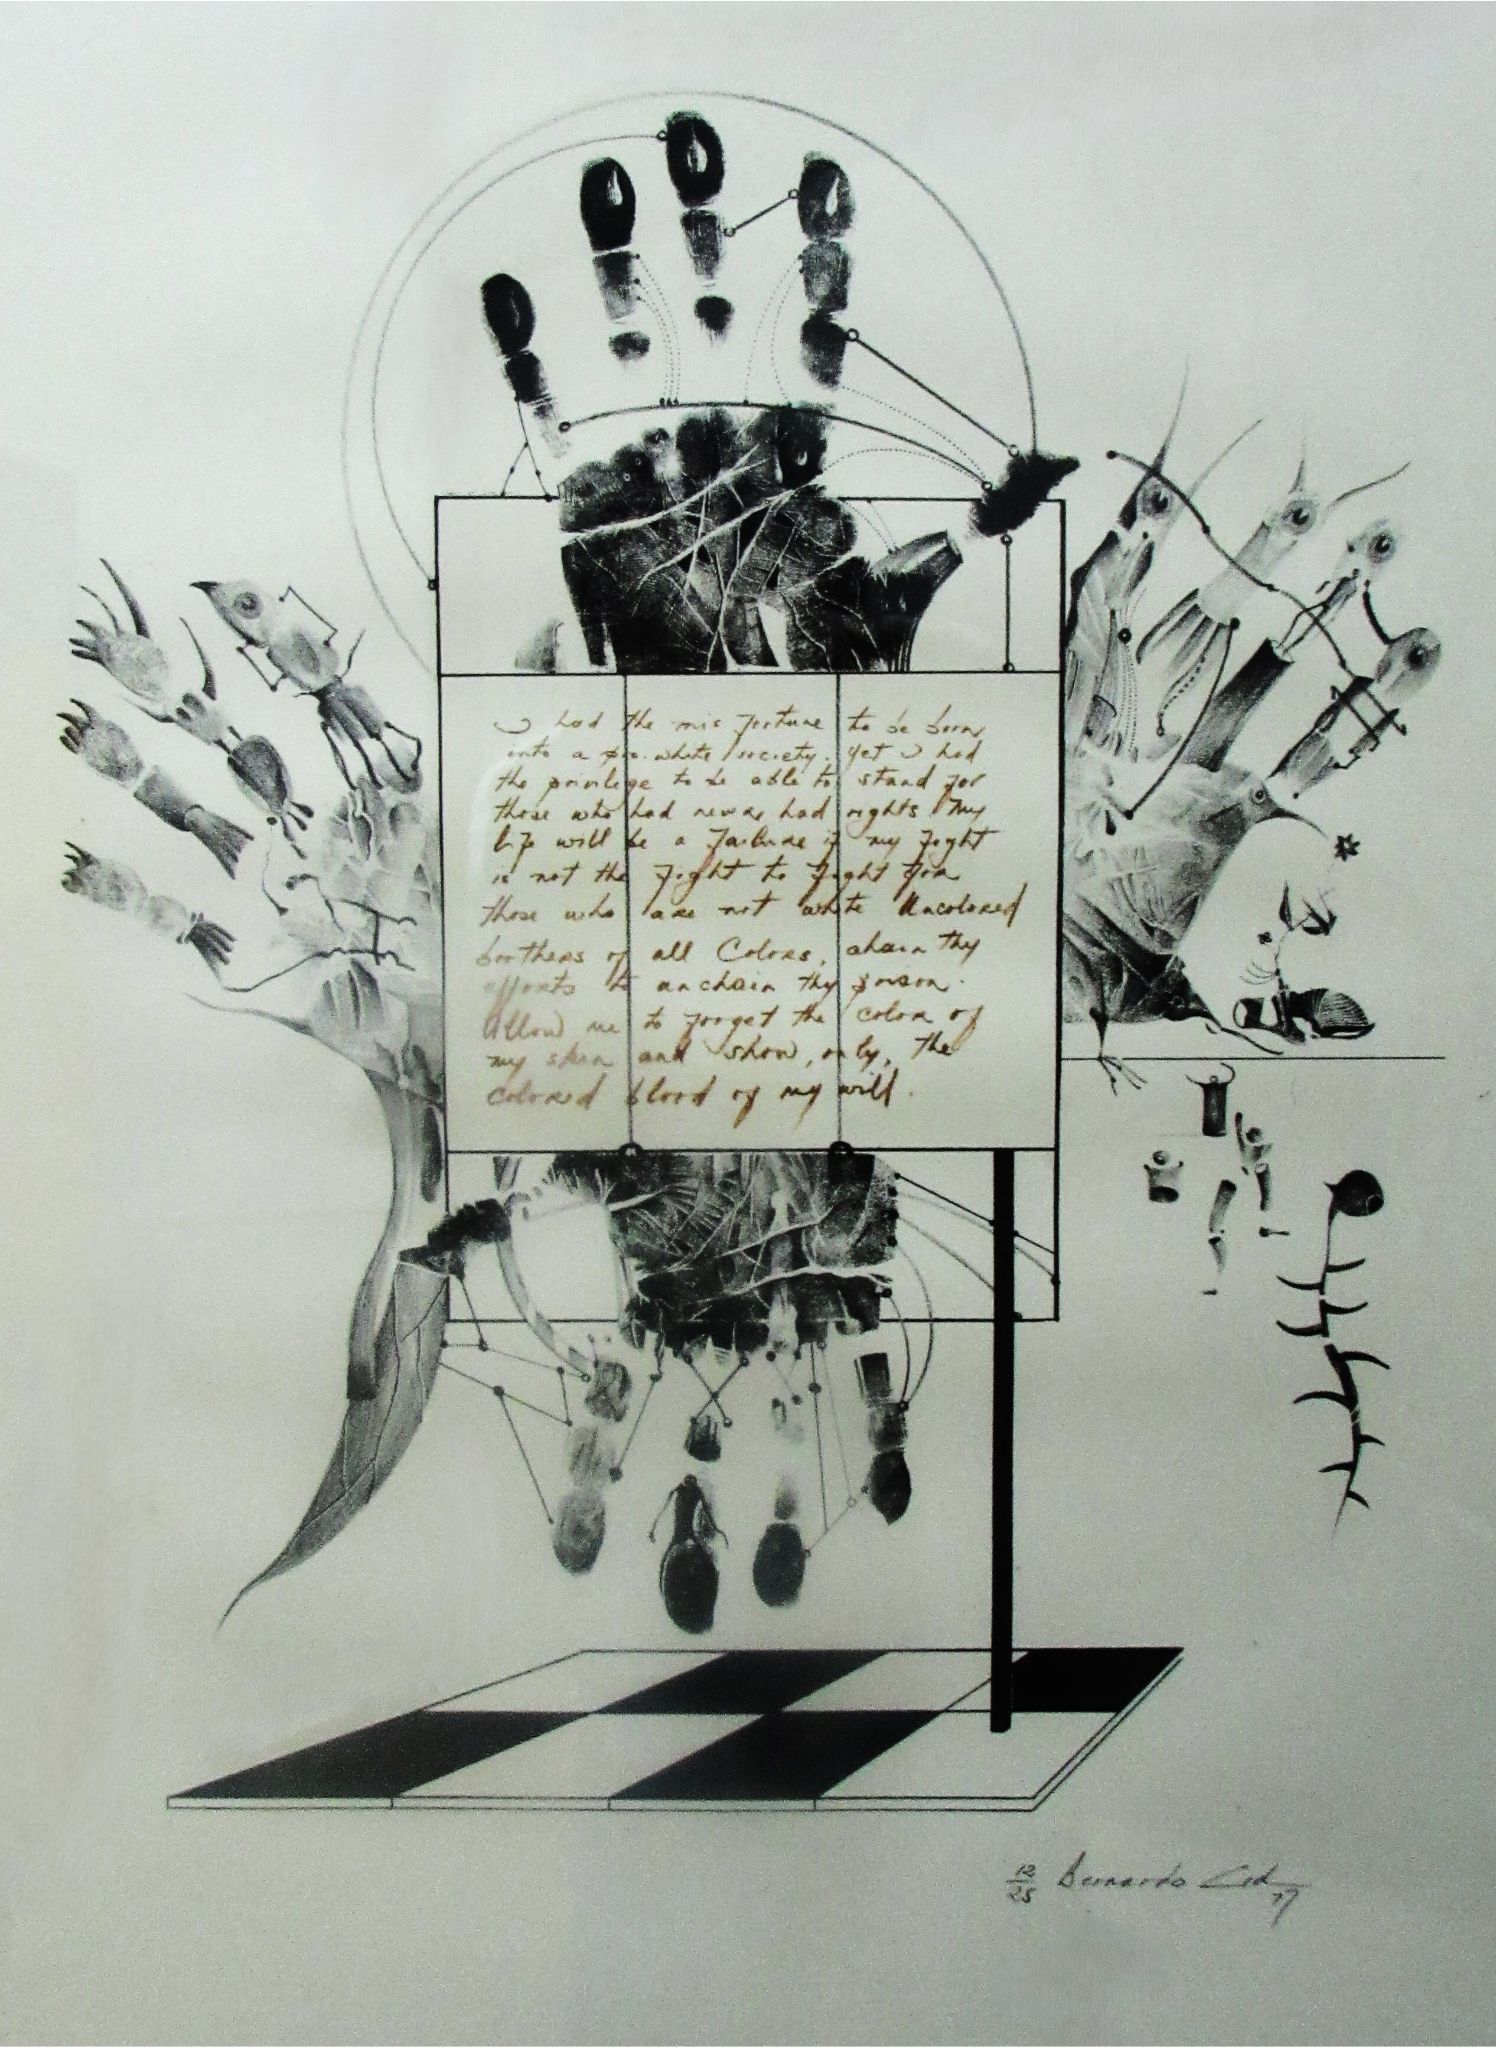 I had the mis fortune to be born
into a pro-white society. Yet I had
the privilege to be able to stand for
those who had never had rights My
life will be a failure if my fight
is not the fight to fight for
those who are not white Uncolored
brothers of all Colors, chain thy
efforts to unchain thy prison.
Allow me to forget the color of
my skin and show, only, the
colored blood of my will.
12/25 Bernardo
77